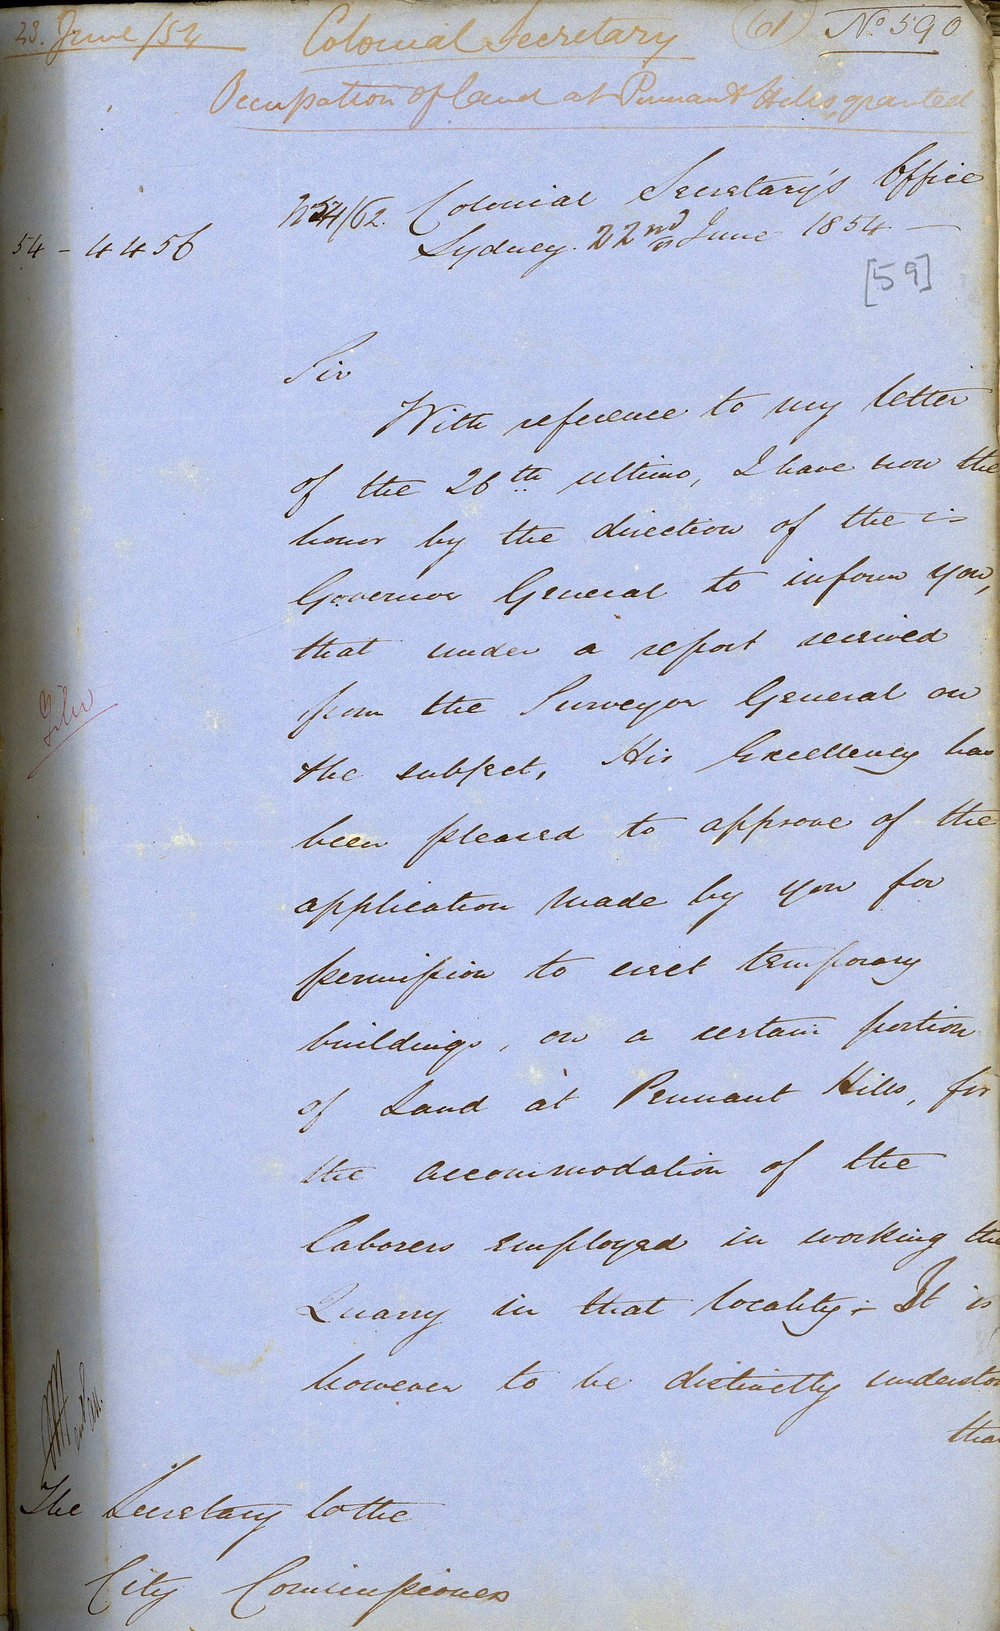 23. June /54 Colonial Secretary (61) No. 590
Occupation of land at Pennant Hills, granted
54/62. Colonial Secretary's Office
54 - 4456
Sydney. 22nd June 1854
[59]
Sir
With reference to my letter
of the 26th ultimo, I have now the
honor by the direction of the
Governor General to inform you,
that under a report received
from the Surveyor General on
the subject, His Excellency has
been pleased to approve of the
application made by you for
permission to erect temporary
buildings, on a certain portion
of Land at Pennant Hills, for
the accommodation of the
laborers employed in working the
Quarry in that locality;- It is
however to be distinctly understoo
tha
The Secretary to the
City Commissioners